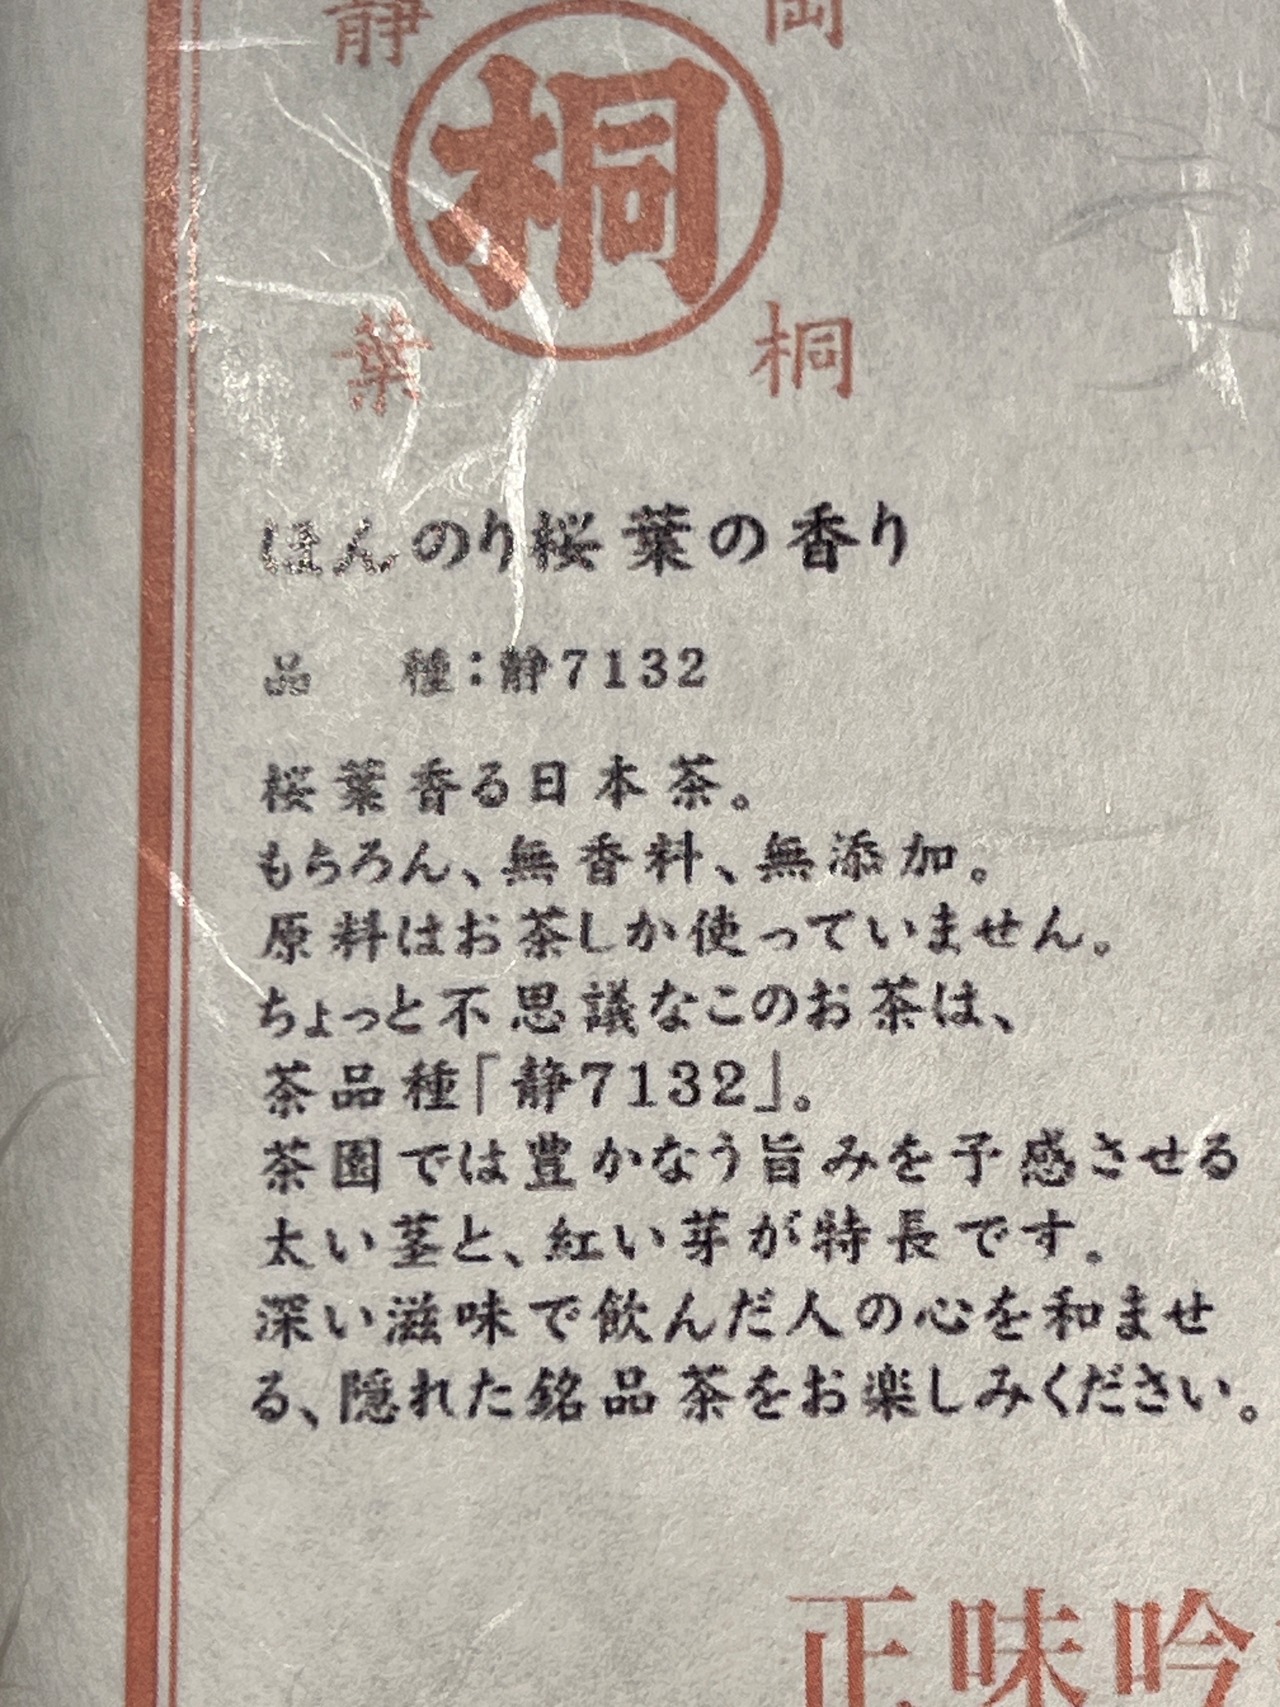 静 岡
桐
葉 桐
ほんのり桜葉の香り
品 種：静7132
桜葉香る日本茶。
もちろん、無香料、無添加。
原料はお茶しか使っていません。
ちょっと不思議なこのお茶は、
茶品種「静7132」。
茶園では豊かなう旨みを予感させる
太い茎と、紅い芽が特長です。
深い滋味で飲んだ人の心を和ませ
る、隠れた銘品茶をお楽しみください。
正味吟